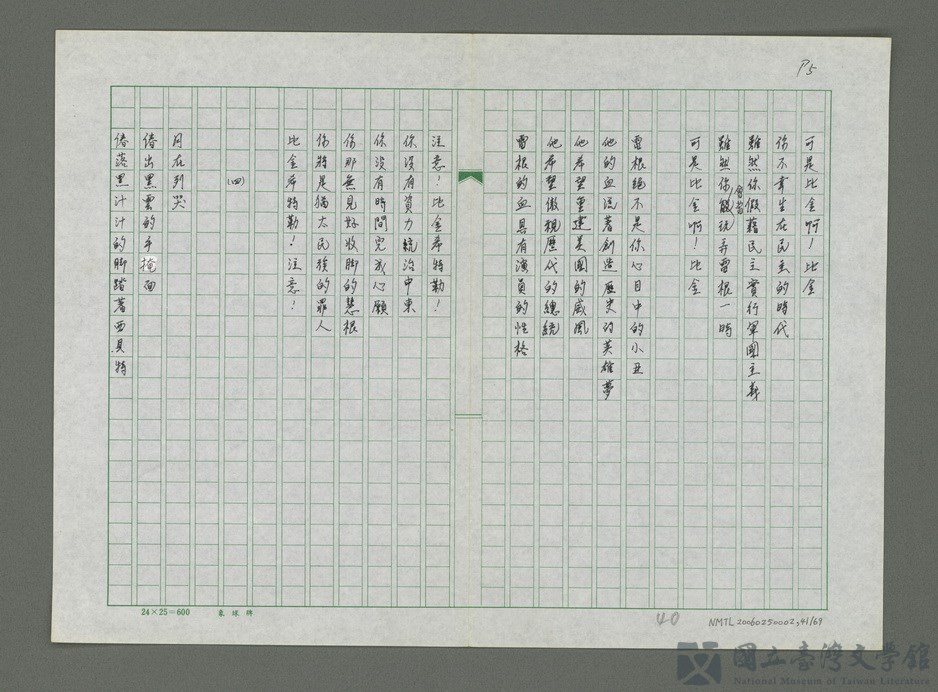 P5
可是比金啊！比金
你不幸生在民主的時代
雖然你假藉民主實行軍國主義
雖然你會當能玩弄雷根一時
可是比金啊！比金
雷根絕不是你心目中的小丑
他的血流著創造歷史的英雄夢
他希望重建美國的威風
他希望傲視歷代的總統
雷根的血具有演員的性格
注意！比金希特勒！
你沒有資力統治中東
你沒有時間完成心願
你那無見好收腳的慧根
你將是猶太民族的罪人
比金希特勒！注意！
(四)
月在列哭
偆出黑雲的手掩面
偆落黑汁汁的腳踏著西貝特
24×25=600
象球牌
40
NMTL20060250002,41/69
國立臺灣文學館
National Museum of Taiwan Literature